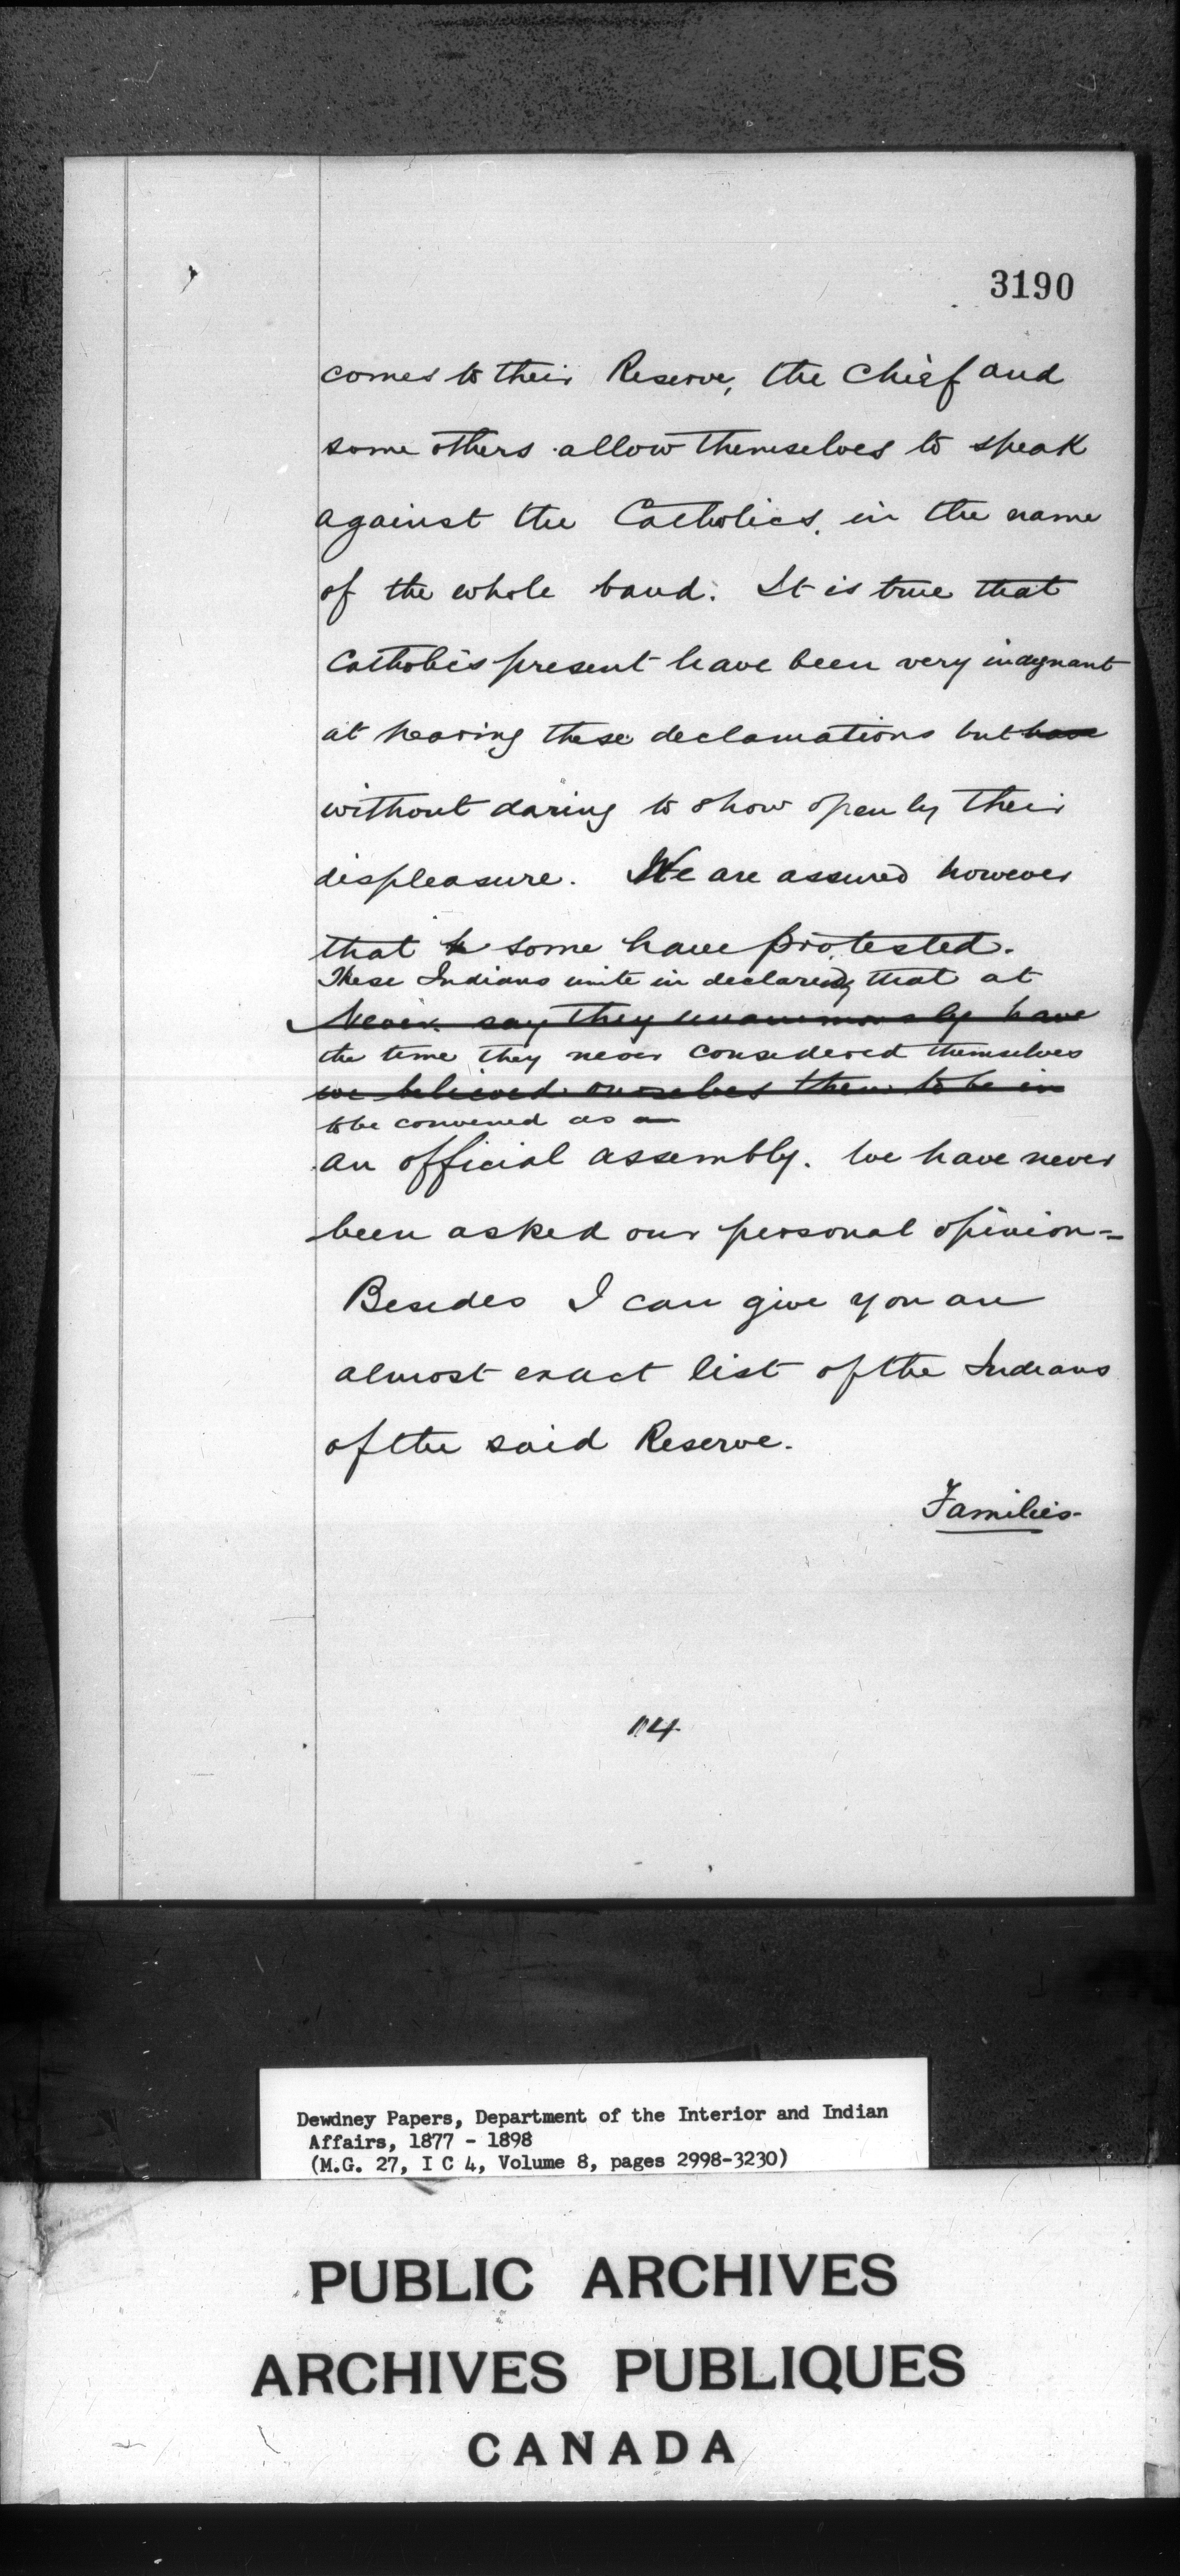 3190
comes to their Reserve, the Chief and
some others allow themselves to speak
against the Catholics, in the name
of the whole band. It is true that
Catholics present have been very indignant
at hearing these declamations but have
without daring to show openly their
displeasure. We are assured however
that some have protested.
These Indians unite in declaring that at
Never say they unanimously have
the time they never considered themselves
we believed ourselves then to be in
to be convened as a
an official assembly. We have never
been asked our personal opinion =
Besides I can give you an
almost exact list of the Indians
of the said Reserve.
Families
114
Dewdney Papers, Department of the Interior and Indian
Affairs, 1877 - 1898
(M.G. 27, I C 4, Volume 8, pages 2998-3230)
PUBLIC ARCHIVES
ARCHIVES PUBLIQUES
CANADA